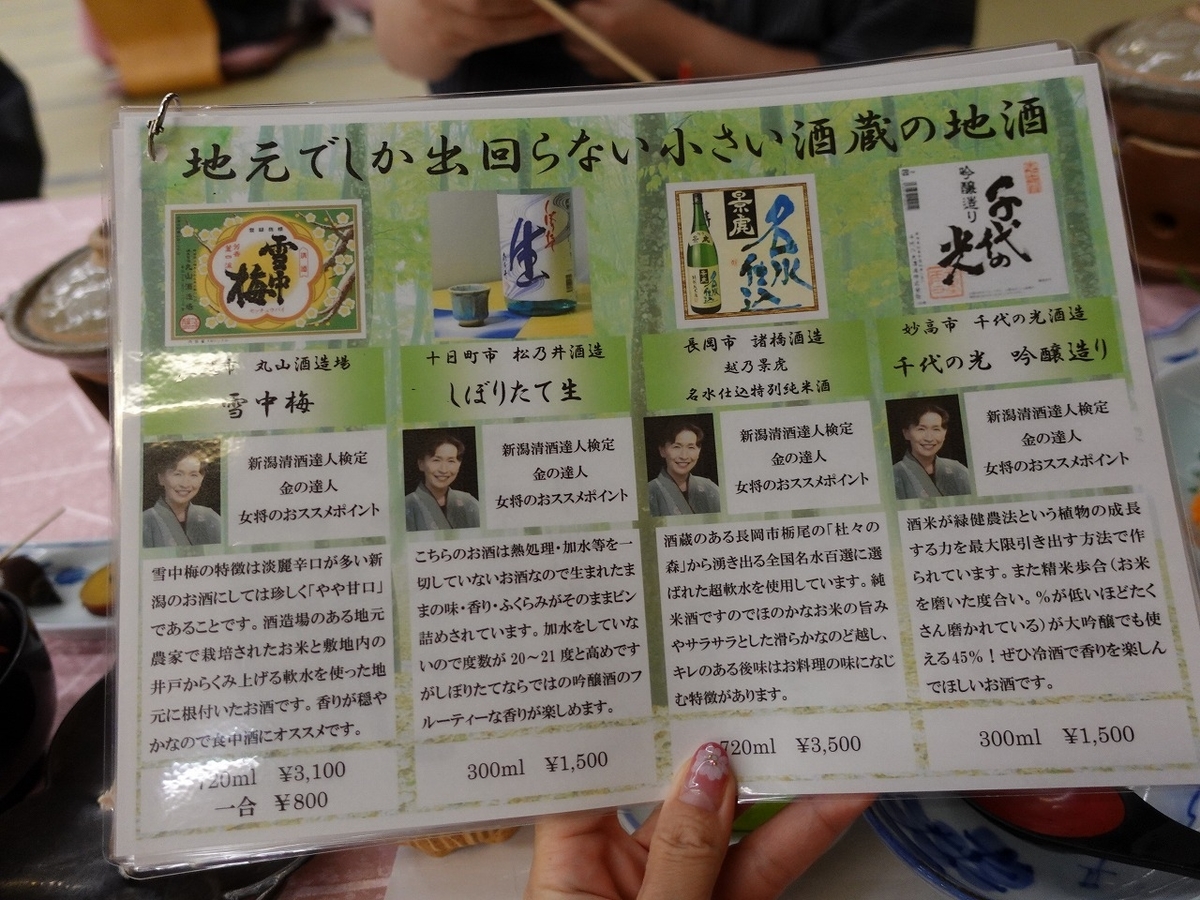 地元でしか出回らない小さい酒蔵の地酒
雪中梅
しぼりたて
生
景虎
名水仕込
吟醸造り
千代の光
丸山酒造場
雪中梅
新潟清酒達人検定
金の達人
女将のおススメポイント
雪中梅の特徴は淡麗辛口が多い新
潟のお酒にしては珍しく「やや甘口」
であることです。酒造場のある地元
農家で栽培されたお米と敷地内の
井戸からくみ上げる軟水を使った地
元に根付いたお酒です。香りが穏や
かなので食中酒にオススメです。
720ml ¥3,100
一合 ¥800
十日町市 松乃井酒造
しぼりたて生
新潟清酒達人検定
金の達人
女将のおススメポイント
こちらのお酒は熱処理・加水等を一
切していないお酒なので生まれたま
まの味・香り・ふくらみがそのままビン
詰めされています。加水をしていな
いので度数が 20～21 度と高めです
がしぼりたてならではの吟醸酒のフ
ルーティーな香りが楽しめます。
300ml ¥1,500
長岡市 諸橋酒造
越乃景虎
名水仕込特別純米酒
新潟清酒達人検定
金の達人
女将のおススメポイント
酒蔵のある長岡市栃尾の「杜々の
森」から湧き出る全国名水百選に選
ばれた超軟水を使用しています。純
米酒ですのでほのかなお米の旨み
やサラサラとした滑らかなのど越し、
キレのある後味はお料理の味になじ
む特徴があります。
720ml ¥3,500
妙高市 千代の光酒造
千代の光 吟醸造り
新潟清酒達人検定
金の達人
女将のおススメポイント
酒米が緑健農法という植物の成長
する力を最大限引き出す方法で作
られています。また精米歩合（お米
を磨いた度合い。％が低いほどたく
さん磨かれている）が大吟醸でも使
える45％！ぜひ冷酒で香りを楽しん
でほしいお酒です。
300ml ¥1,500